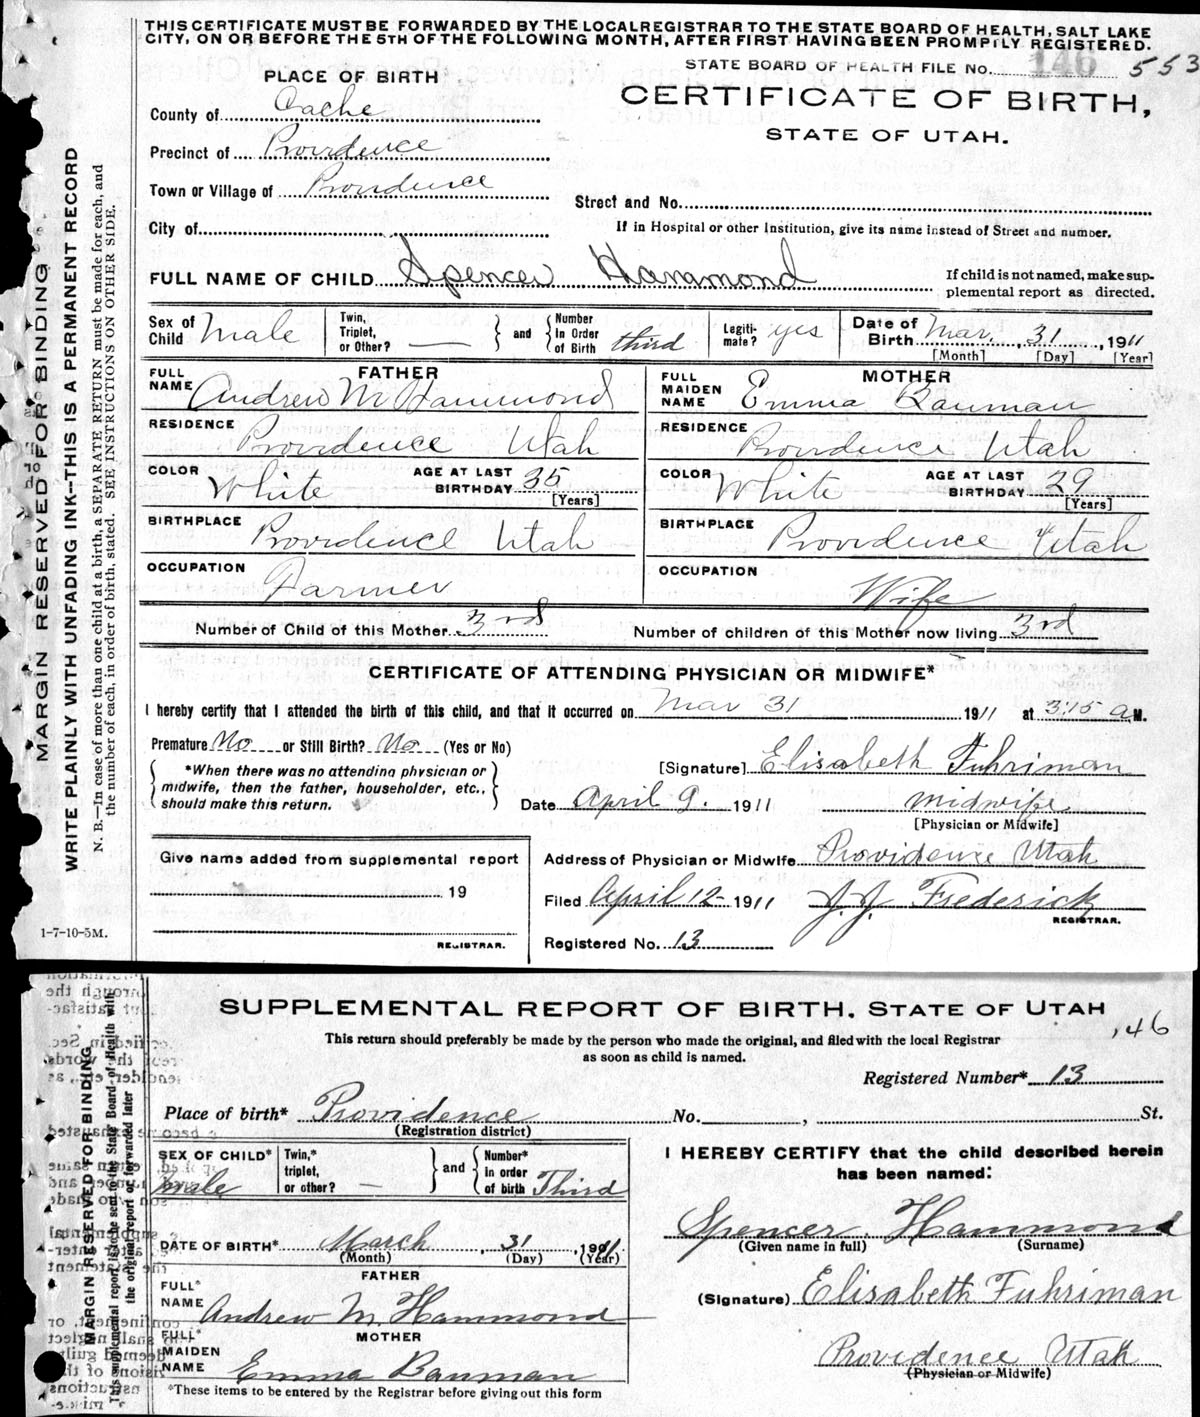 THIS CERTIFICATE MUST BE FORWARDED BY THE LOCAL REGISTRAR TO THE STATE BOARD OF HEALTH, SALT LAKE
CITY, ON OR BEFORE THE 5TH OF THE FOLLOWING MONTH, AFTER FIRST HAVING BEEN PROMPTLY REGISTERED.
STATE BOARD OF HEALTH FILE No. 146 553
PLACE OF BIRTH
CERTIFICATE OF BIRTH,
STATE OF UTAH.
County of Cache
Precinct of Providence
Town or Village of Providence
Street and No.
City of
If in Hospital or other Institution, give its name instead of Street and number.
FULL NAME OF CHILD Spencer Hammond
If child is not named, make sup-
plemental report as directed.
Sex of Child Male
Twin, Triplet, or Other? — and Number in Order of Birth third
Legiti-mate? yes
Date of Birth Mar. 31, 1911
[Month] [Day] [Year]
FATHER
FULL NAME Andrew M Hammond
RESIDENCE Providence Utah
COLOR White AGE AT LAST BIRTHDAY 35
[Years]
BIRTHPLACE Providence Utah
OCCUPATION Farmer
MOTHER
FULL MAIDEN NAME Emma Bauman
RESIDENCE Providence Utah
COLOR White AGE AT LAST BIRTHDAY 29
[Years]
BIRTHPLACE Providence Utah
OCCUPATION Wife
Number of Child of this Mother 3rd Number of children of this Mother now living 3rd
CERTIFICATE OF ATTENDING PHYSICIAN OR MIDWIFE*
I hereby certify that I attended the birth of this child, and that it occurred on Mar 31 1911 at 3:15 a M.
Premature No or Still Birth? No (Yes or No)
*When there was no attending physician or
midwife, then the father, householder, etc.,
should make this return.
[Signature] Elisabeth Fuhriman
Date April 9. 1911 midwife
[Physician or Midwife]
Give name added from supplemental report
19
REGISTRAR.
Address of Physician or Midwife Providence Utah
Filed April 12 1911 J. J. Frederick
REGISTRAR.
Registered No. 13
1-7-10-5M.
MARGIN RESERVED FOR BINDING
WRITE PLAINLY WITH UNFADING INK—THIS IS A PERMANENT RECORD
N. B.—In case of more than one child at a birth, a SEPARATE RETURN must be made for each, and
the number of each, in order of birth, stated. SEE INSTRUCTIONS ON OTHER SIDE.
SUPPLEMENTAL REPORT OF BIRTH, STATE OF UTAH
146
This return should preferably be made by the person who made the original, and filed with the local Registrar
as soon as child is named.
Registered Number* 13
Place of birth* Providence No. , St.
(Registration district)
SEX OF CHILD* male
Twin,* triplet, or other? — and Number* in order of birth Third
DATE OF BIRTH* March, 31, 1911
(Month) (Day) (Year)
FATHER
FULL* NAME Andrew M. Hammond
MOTHER
FULL* MAIDEN NAME Emma Bauman
*These items to be entered by the Registrar before giving out this form
I HEREBY CERTIFY that the child described herein
has been named:
Spencer Hammond
(Given name in full) (Surname)
(Signature) Elisabeth Fuhriman
Providence Utah
(Physician or Midwife)
MARGIN RESERVED FOR BINDING
This supplemental report is to be sent to the State Board of Health with
the original report or forwarded later